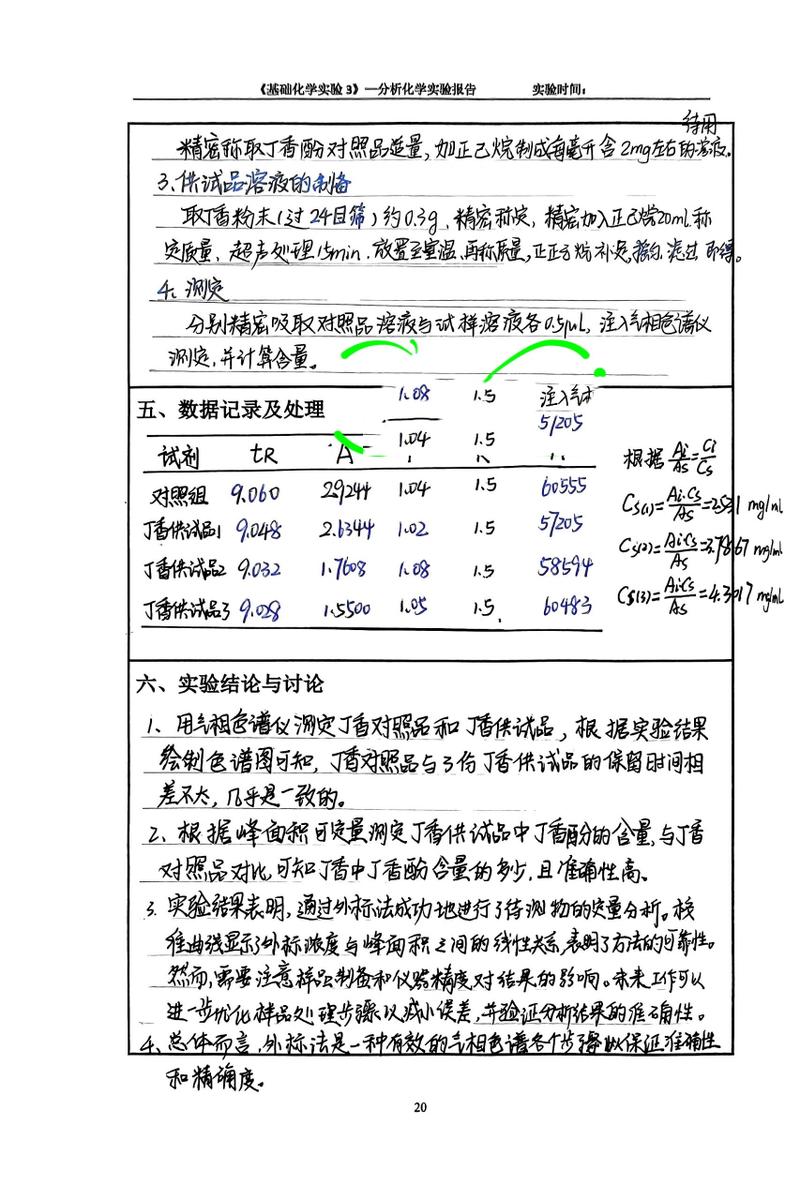 《基础化学实验 3》—分析化学实验报告 实验时间:
待用
精密称取丁香酚对照品适量,加正己烷制成每毫升含2mg左右的溶液。
3、供试品溶液的制备
取丁香粉末(过24目筛)约0.3g,精密称定,精密加入正己烷20mL称
定质量,超声处理15min,放置至室温,再称质量,正己烷补足,摇匀,滤过 即得。
4、测定
分别精密吸取对照品溶液与试样溶液各0.5μL,注入气相色谱仪
测定,并计算含量。
五、数据记录及处理
1.08 1.5 注入
51205
1.04 1.5
试剂 tR A
对照组 9.060 2.9244 1.04 1.5 60555
丁香供试品1 9.048 2.6344 1.02 1.5 57205
丁香供试品2 9.032 1.7608 1.08 1.5 58594
丁香供试品3 9.028 1.5500 1.05 1.5 60483
根据 Ai/As=Ci/Cs
Cs(1)=Ai.Cs/As= mg/mL
Cs(2)=Ai.Cs/As= mg/mL
Cs(3)=Ai.Cs/As=4.3017 mg/mL
六、实验结论与讨论
1、用气相色谱仪测定丁香对照品和丁香供试品,根据实验结果
绘制色谱图可知,丁香对照品与3份丁香供试品的保留时间相
差不大,几乎是一致的。
2、根据峰面积可定量测定丁香供试品中丁香酚的含量,与丁香
对照品对比,可知丁香中丁香酚含量的多少,且准确性高。
3、实验结果表明,通过外标法成功地进行了待测物的定量分析。校
准曲线显示了外标浓度与峰面积之间的线性关系,表明了方法的可靠性。
然而,需要注意样品制备和仪器精度对结果的影响。未来工作可以
进一步优化样品处理步骤以减小误差,并验证分析结果的准确性。
4、总体而言,外标法是一种有效的气相色谱各个步骤以保证准确性
和精确度。
20